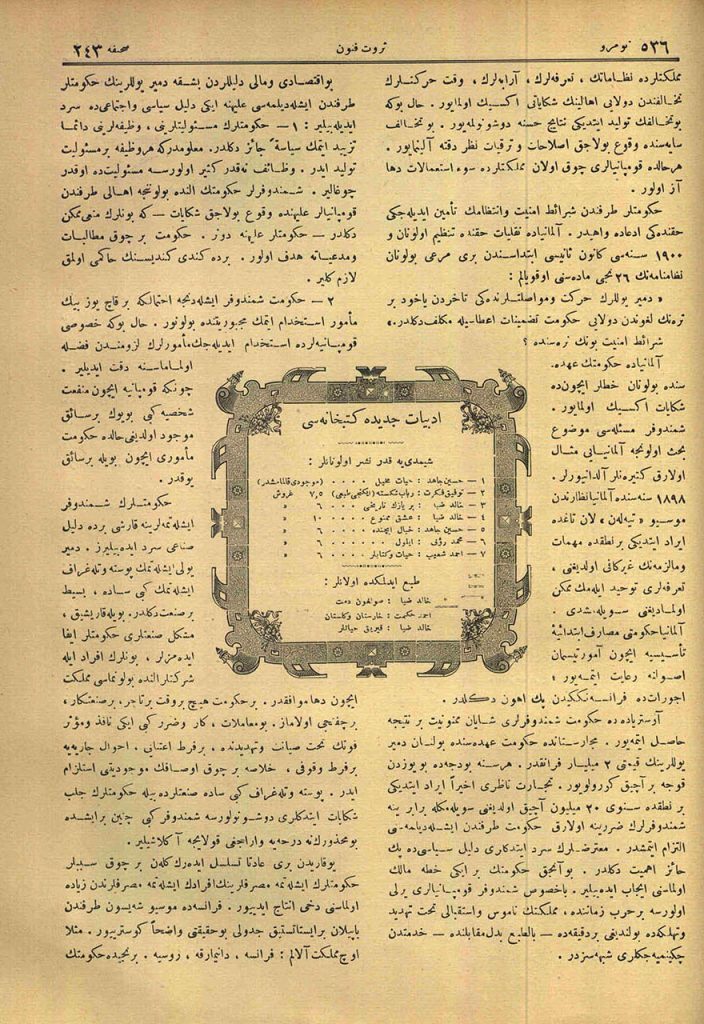 ٥٣٦ نومرو
ثروت فنون
صحیفه ٢٤٣
مملكتلرده نظاماتك ، تعرفه‌لرك ، آرابه‌لرك ، وقت حركتلرك
تخالفندن دولایی اهالینك شكایاتی اكسیك اولمایور . حال بوكه
بو تخالفك تولید ایتدیكی نتایج حسنه دوشونولمه‌یور . بو تخالف
سایه‌سنده وقوع بولاجق اصلاحات و ترقیات نظر دقته آلینمایور .
هر حالده قومپانیالری چوق اولان مملكتلرده سوء استعمالات دها
آز اولور .
حكومتلر طرفندن شرائط امنیت وانتظامك تأمین ایدیله‌جكی
حقنده‌كی ادعاده واهیدر . آلمانیاده نقلیات حقنده تنظیم اولونان و
١٩٠٠ سنه‌سی كانون ثانیسی ابتداسندن بری مرعی بولونان
نظامنامه‌نك ٢٦ نجی ماده‌سنی اوقویالم :
« دمیر یوللرك حركت ومواصلتلرنده‌كی تأخردن یاخود بر
ترەنك لغوندن دولایی حكومت تضمینات اعطاسیله مكلف دكلدر.»
شرائط امنیت بونك نره‌سنده ؟
آلمانیاده حكومتك عهده‌
سنده بولونان خطلر ایچون‌ده
شكایات اكسیك اولمایور .
شمندوفر مسئله‌سی موضوع
بحث اولونجه آلمانیایی مثال
اولارق كتیره‌نلر آلدانیورلر .
١٨٩٨ سنه‌سنده آلمانیا نظارندن
موسیو « تیه‌لەن » لان تاغده
ایراد ایتدیكی بر نطقده مهمات
ومالزمه‌نك غیر كافی اولدیغنی ،
تعرفه‌لری توحید ایله‌مك ممكن
اولمادیغنی سویله‌شدی .
آلمانیا حكومتی مصارف ابتدائیۀ
تأسیسیه ایچون آمورتیسمان
اصولنه رعایت ایتمه‌یور ؛
اجوراتده فرانسه‌نككیدن پك اهون دكلدر .
آوستریاده ده حكومت شمندوفرلری شایان ممنونیت بر نتیجه
حاصل ایتمه‌یور . مجارستانده حكومت عهده‌سنده بولنان دمیر
یوللرینك قیمتی ٢ میلیار فرانقدر . هر سنه بودجه‌ده بو یوزدن
قوجه بر آچیق كورولویور . تجارت ناظری اخیراً ایراد ایتدیكی
بر نطقده سنوی ٢٠ میلیون آچیق اولدیغنی سویله‌مكله برابر ینه
شمندوفرلرك ضررینه اولارق حكومت طرفندن ایشله‌دیلمه‌سنی
التزام ایتمشدر . معترضلرك سرد ایتدكلری دلیل سیاسی‌ده پك
حائز اهمیت دكلدر . بو آنجق حكومتك بر ایكی خطه مالك
اولماسنی ایجاب ایده‌بیلیر . باخصوص شمندوفر قومپانیالری یرلی
اولورسه بر حرب زماننده ، مملكتك ناموس واستقبالی تحت تهدید
وتهلكه‌ده بولندیغی بر دقیقه‌ده — بالطبع بدل مقابلنده — خدمتدن
چكینمیه‌جكلری شبهه‌سزدر .
بو اقتصادی ومالی دلیللردن بشقه دمیر یوللرینك حكومتلر
طرفندن ایشله‌دیلمه‌سی علیهنه ایكی دلیل سیاسی واجتماعی‌ده سرد
ایدیله‌بیلیر : ١ — حكومتلرك مسئولیتلرینی ، وظیفه‌لرینی دائما
تزیید ایتمك سیاسةً جائز دكلدر. معلومدركه هر وظیفه بر مسئولیت
تولید ایدر . وظائف نه‌قدر كثیر اولورسه مسئولیت‌ده اوقدر
چوغالیر . شمندوفرلر حكومتك النده بولونجه اهالی طرفندن
قومپانیالر علیهنده وقوع بولاجق شكایات — كه بونلرك منعی ممكن
دكلدر — حكومتلر علیهنه دونر . حكومت بر چوق مطالبات
ومدعیاته هدف اولور . برده كندی كندیسنك حاكمی اولمق
لازم كلیر .
٢ — حكومت شمندوفر ایشله‌دنجه احتمالكه بر قاچ یوز بیك
مأمور استخدام ایتمك مجبوریتنده بولونور . حال بوكه خصوصی
قومپانیه‌لرده استخدام ایدیله‌جك مأمورلرك لزومندن فضله
اولماماسنه دقت ایدیلیر .
چونكه قومپانیه ایچون منفعت
شخصیه كبی بویوك بر سائق
موجود اولدیغی حالده حكومت
مأموری ایچون بویله بر سائق
یوقدر .
حكومتلرك شمندوفر
ایشله‌تمه‌لرینه قارشی برده دلیل
صناعی سرد ایده‌بیلیرز . دمیر
یولی ایشله‌تمك پوسته وتلغراف
ایشله‌تمك كبی ساده ، بسیط
بر صنعت دكلدر. بویله قاریشیق ،
مشكل صنعتلری حكومتلر ایفا
ایده‌مزلر ، بونلرك افراد ایله
شركتلر النده بولونماسی مملكت
ایچون دها موافقدر . بر حكومت هیچ بر وقت بر تاجر، بر صنعتكار ،
بر چفتجی اولاماز . بو معاملات ، كار وضرر كبی ایكی نافذ ومؤثر
قوتك تحت صیانت وتهدیدنده ، بر فرط اعتنایی . احوال جاریه‌یه
بر فرط وقوفی ، خلاصه بر چوق اوصافك موجودیتنی استلزام
ایدر . پوسته وتلغراف كبی ساده صنعتلرده بیله حكومتلرك جلب
شكایات ایتدكلری دوشونولورسه شمندوفر كبی چتین بر ایشده
بو محذورك نه درجه‌یه وارابجغی قولایجه آكلاشیلیر .
یوقاریدن بری عادتا تسلسل ایده‌رك كلەن بر چوق سببلر
حكومتلرك ایشله‌تمه مصرفلرینك افرادك ایشله‌تمه مصرفلرندن زیاده
اولماسنی دخی انتاج ایدییور . فرانسه‌ده موسیو شه‌یسون طرفندن
یاپیلان بر ایستاتستیق جدولی بو حقیقتی واضحاً كوستریور . مثلا
اوچ مملكت آلالم : فرانسه ، دانیمارقه ، روسیه . برنجیده حكومتك
ادبیات جدیده كتبخانه‌سی
شیمدی‌یه قدر نشر اولونانلر :
١ — حسین جاهد : حیات مخیل ٠٠٠٠ (موجودی قالمامشدر)
٢ — توفیق فكرت : رباب شكسته (ایكنجی طبعی) ٧,٥ غروش
٣ — خالد ضیا : بر یازك تاریخی ٠٠٠ ٦ »
٤ — خالد ضیا : عشق ممنوع ٠٠٠٠ ١٠ »
٥ — حسین جاهد : خیال ایچنده ٠٠٠ ٦ »
٦ — محمد رؤف : ایلول ٠٠٠٠٠ ٦ »
٧ — احمد شعیب : حیات وكتابلر ٠٠٠ ٦ »
طبع ایدلمكده اولانلر :
خالد ضیا : صولغون دمت
احمد حكمت : خارستان وگلستان
خالد ضیا : قیریق حیاتلر